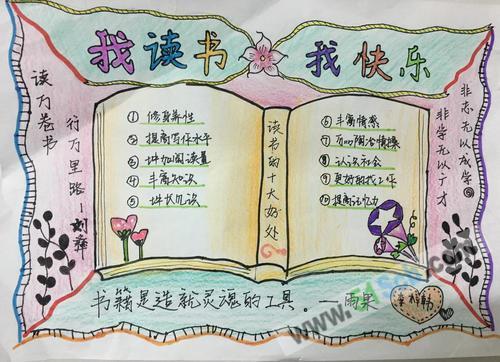 我读书 我快乐
读万卷书
行万里路—刘彝
读书的十大好处?
① 修身养性
② 提高写作水平
③ 增加阅读量
④ 丰富知识
⑤ 增长见识
⑥ 丰富情感
⑦ 可以陶冶情操
⑧ 认识社会
⑨ 更好的找工作
⑩ 提高记忆力
非志无以成学
非学无以广才
书籍是造就灵魂的工具。—雨果